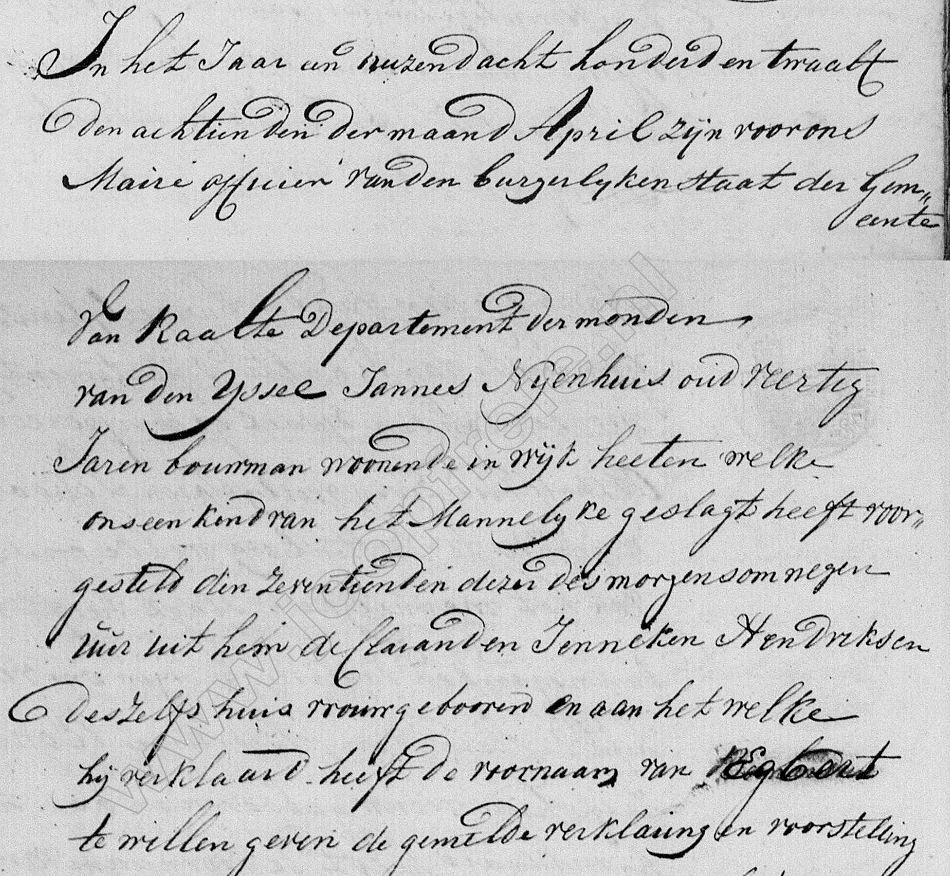 In het Jaar een duizend acht honderd en twaalf
den achtienden der maand April zijn voor ons
Maire officier van den burgerlyken staat der Gem„
eente
van Raalte Departement der monden
van den Yssel Jannes Nyenhuis oud veertig
Jaren bouwman woonende in wijk heeten welke
ons een kend van het Mannelyke geslagt heeft voor„
gesteld den zeventienden dezer des morgens om negen
uur uit hem declarand en Jenneken Hendriksen
deszelfs huis vrouw gebooren en aan het welke
hij verklaard heeft de voornaam van Egbert
te willen geven de gemelde verklaring en voorstelling
www.jcopfrene.nl